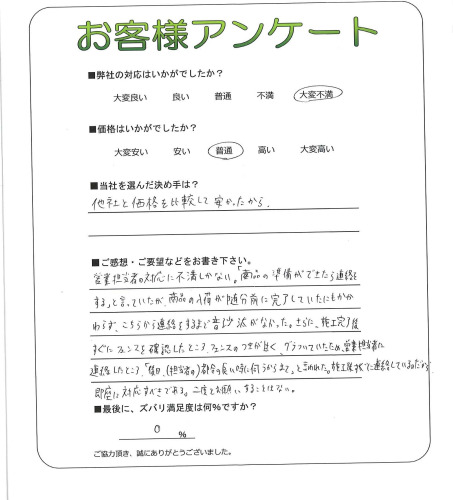 お客様アンケート
■弊社の対応はいかがでしたか？
大変良い 良い 普通 不満 大変不満
■価格はいかがでしたか？
大変安い 安い 普通 高い 大変高い
■当社を選んだ決め手は？
他社と価格を比較して安かったから。
■ご感想・ご要望などをお書き下さい。
営業担当者の対応に不満しかない。「商品の準備ができたら連絡を
する」と言っていたが、商品の準備が随分前に完了していたにもかか
わらず、こちらから連絡をするまで音沙汰がなかった。さらに、施工完了後
すぐにフェンスを確認したところ、フェンスのつきが甘く、グラついていたため、営業担当者に
連絡したところ、「後日、(担当者の)都合の良い時に伺うからまて」と言われた。施工後すぐに連絡しているのだから
即座に対応すべきである。二度とお願いすることはない。
■最後に、ズバリ満足度は何％ですか？
0 %
ご協力頂き、誠にありがとうございました。